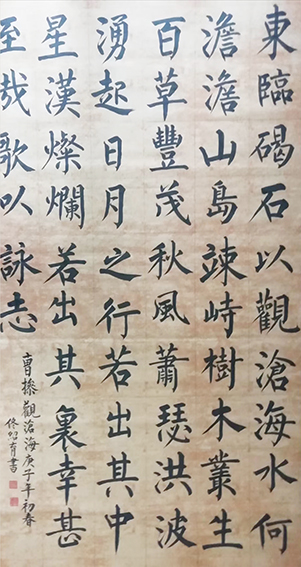 東臨碣石以觀滄海水何
澹澹山島竦峙樹木叢生
百草豐茂秋風蕭瑟洪波
湧起日月之行若出其中
星漢燦爛若出其裏幸甚
至哉歌以詠志
曹操觀滄海庚子年初春
書